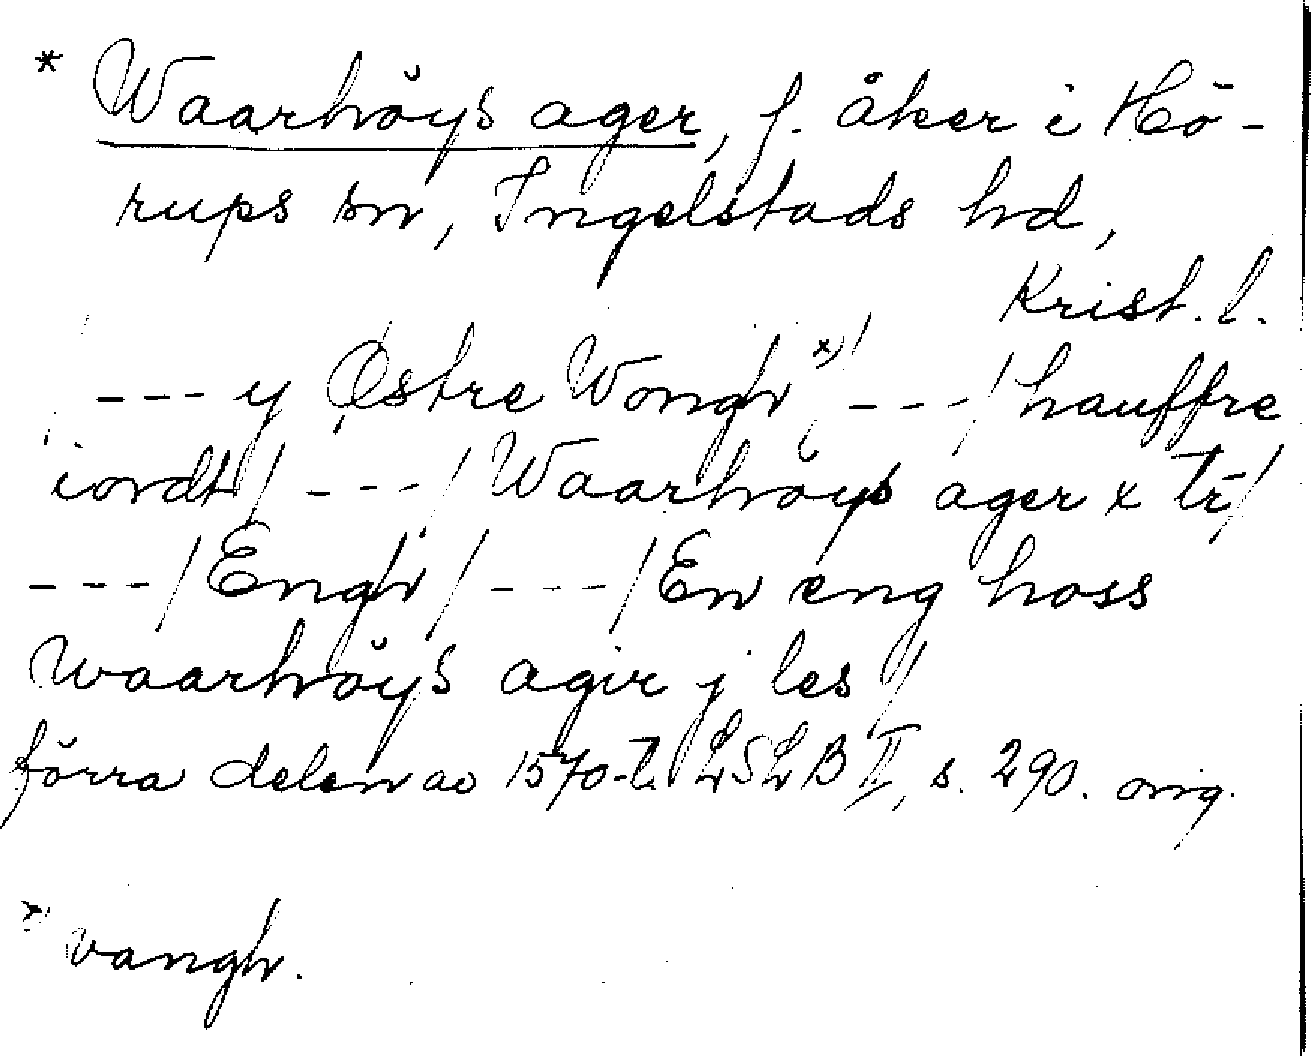 * Waarhöÿs ager, f. åker i Hö-
rups sn, Ingelstads hd,
Krist. l.
--- y Østre Wongh x) / --- / hauffre
iordt / --- / Waarhöys ager x tr /
--- / Engh / --- / En eng hoss
waarhöÿs agir j les /
förra delen av 1570-t. LSLB II, s. 290. orig.
x) vangh.